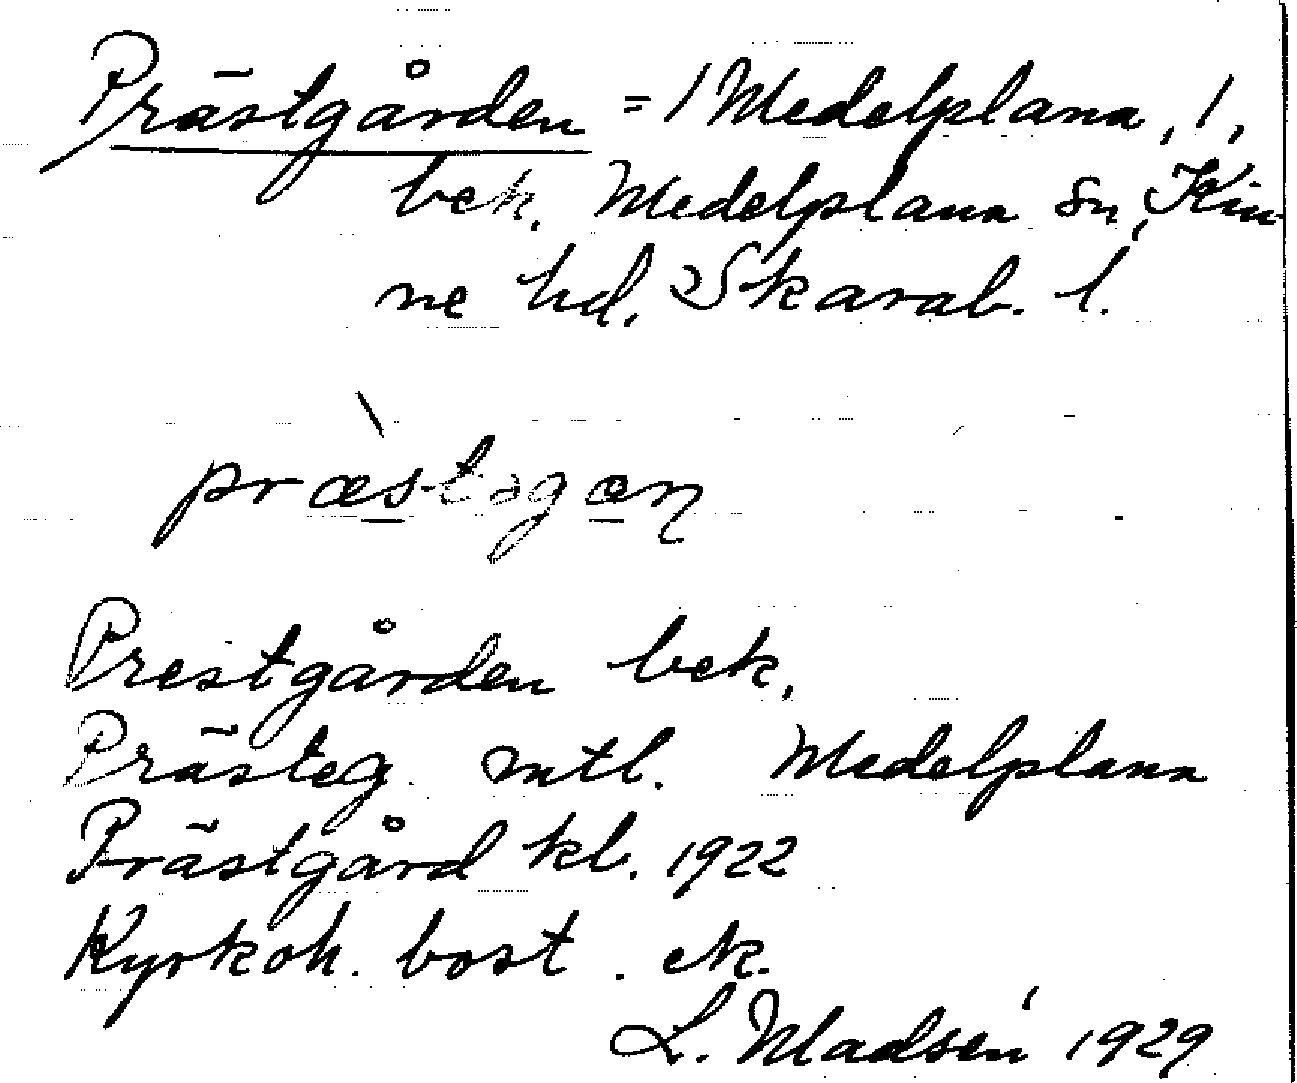 Prästgården = / Medelplana, /,
bek. Medelplana sn, Kin-
ne hd, Skarab. l.
præstəgən
Prestgården bek.
Prästeg. mtl. Medelplana
Prästgård kl. 1922
Kyrkoh. bost. ek.
L. Madsén 1929